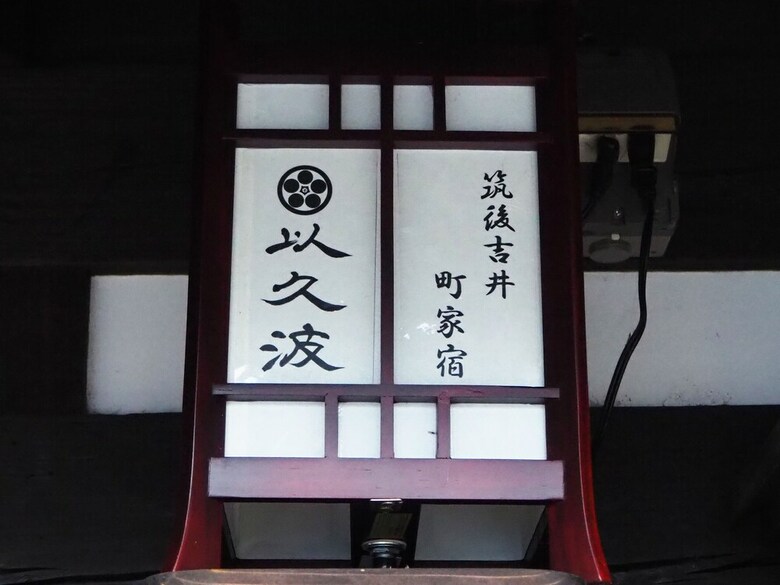 筑後吉井
町家宿
以久波